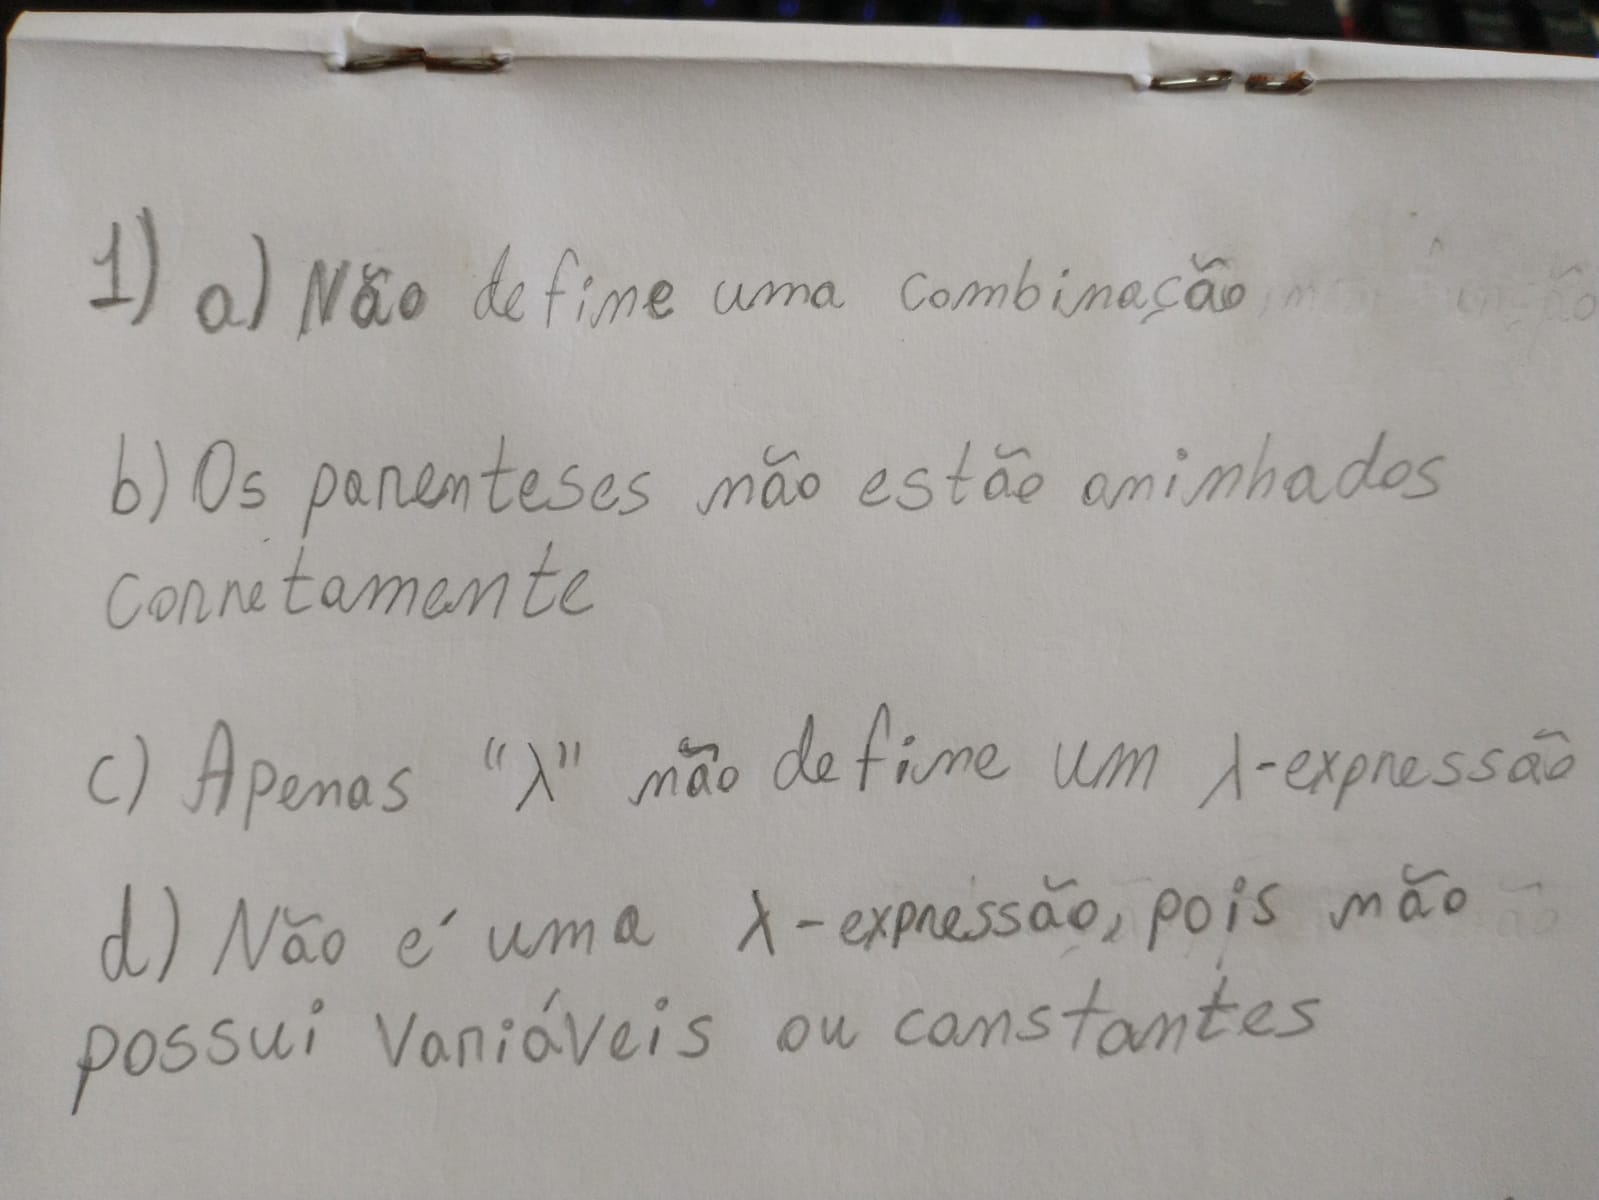 1) a) Não define uma combinação
b) Os parenteses não estão aninhados
corretamente
c) Apenas "λ" não define um λ-expressão
d) Não é uma λ-expressão, pois não
possui variáveis ou constantes